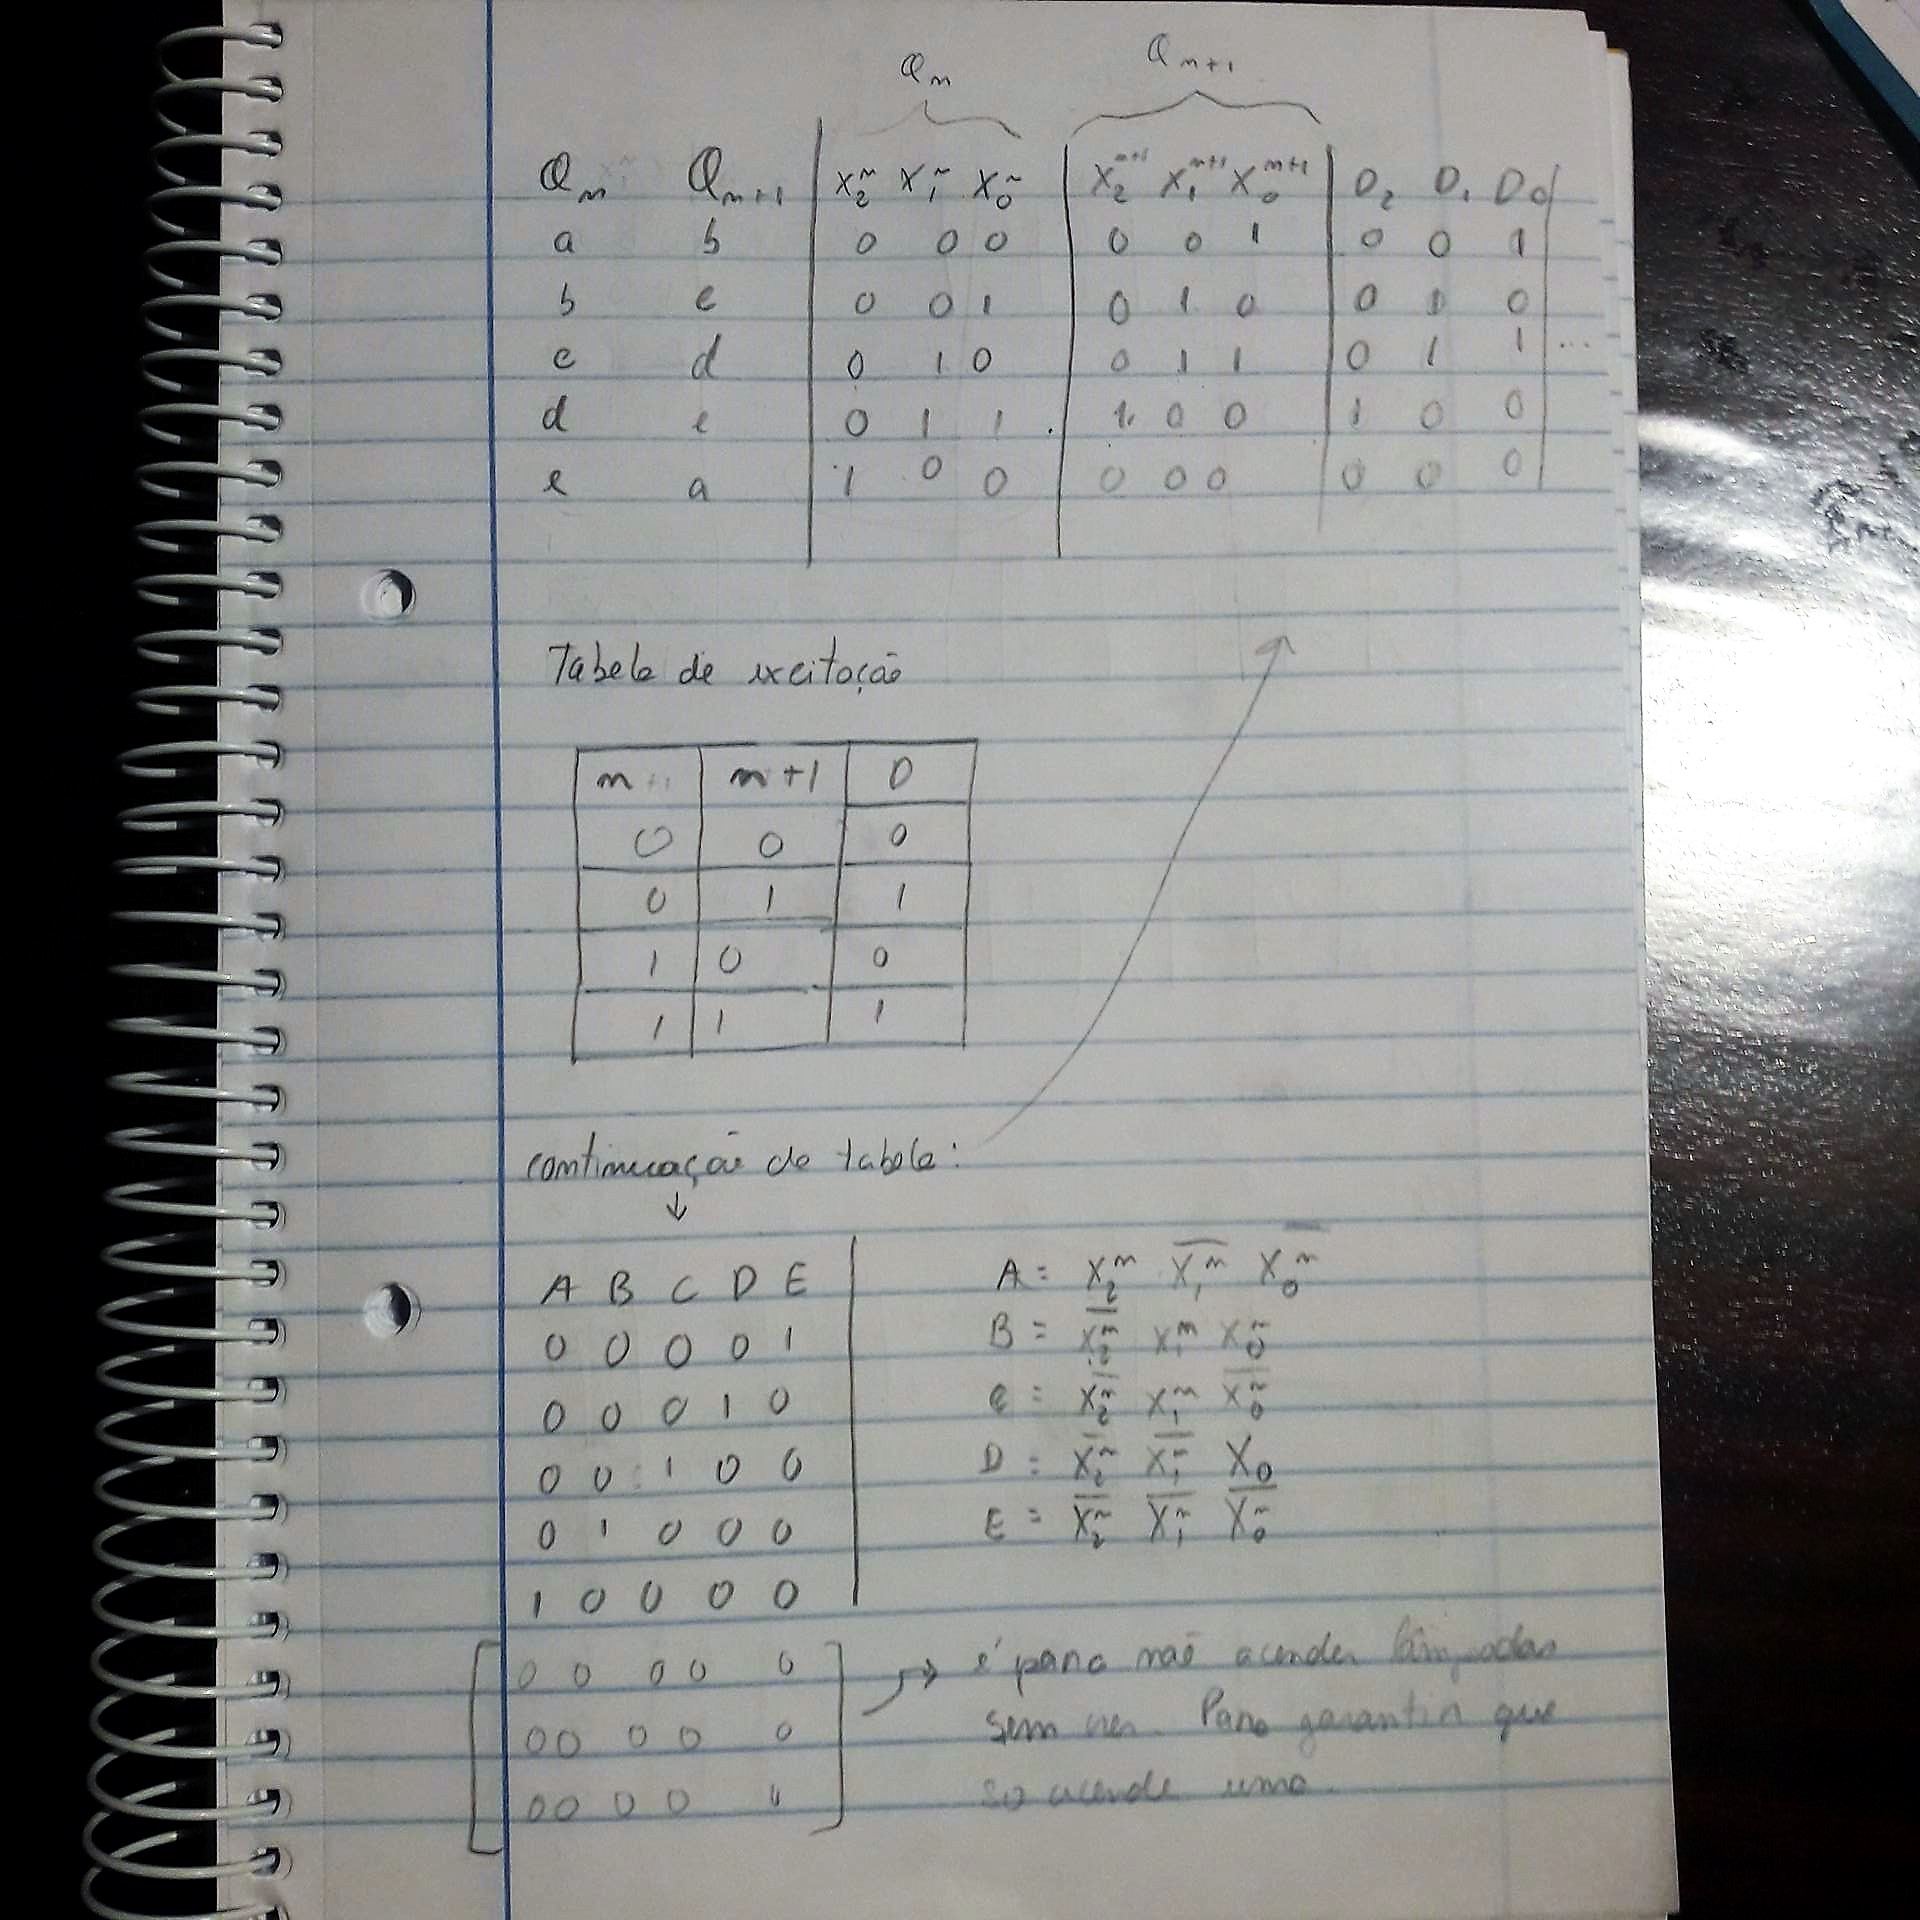 Qn Qn+1
Qn Qn+1 X₂ⁿ X₁ⁿ X₀ⁿ X₂ⁿ⁺¹ X₁ⁿ⁺¹ X₀ⁿ⁺¹ D₂ D₁ D₀
a b 0 0 0 0 0 1 0 0 1
b c 0 0 1 0 1 0 0 1 0
c d 0 1 0 0 1 1 0 1 1 ...
d e 0 1 1 1 0 0 1 0 0
e a 1 0 0 0 0 0 0 0 0
Tabela de excitação
n n+1 D
0 0 0
0 1 1
1 0 0
1 1 1
continuação da tabela:
↓
A B C D E
0 0 0 0 1
0 0 0 1 0
0 0 1 0 0
0 1 0 0 0
1 0 0 0 0
0 0 0 0 0
0 0 0 0 0
0 0 0 0
A = X₂ⁿ X̅₁ⁿ X̅₀ⁿ
B = X̅₂ⁿ X₁ⁿ X₀ⁿ
C = X̅₂ⁿ X₁ⁿ X̅₀ⁿ
D = X̅₂ⁿ X̅₁ⁿ X₀
E = X̅₂ⁿ X̅₁ⁿ X̅₀ⁿ
→ é para não acender lâmpadas
sem Para garantir que
so acende uma